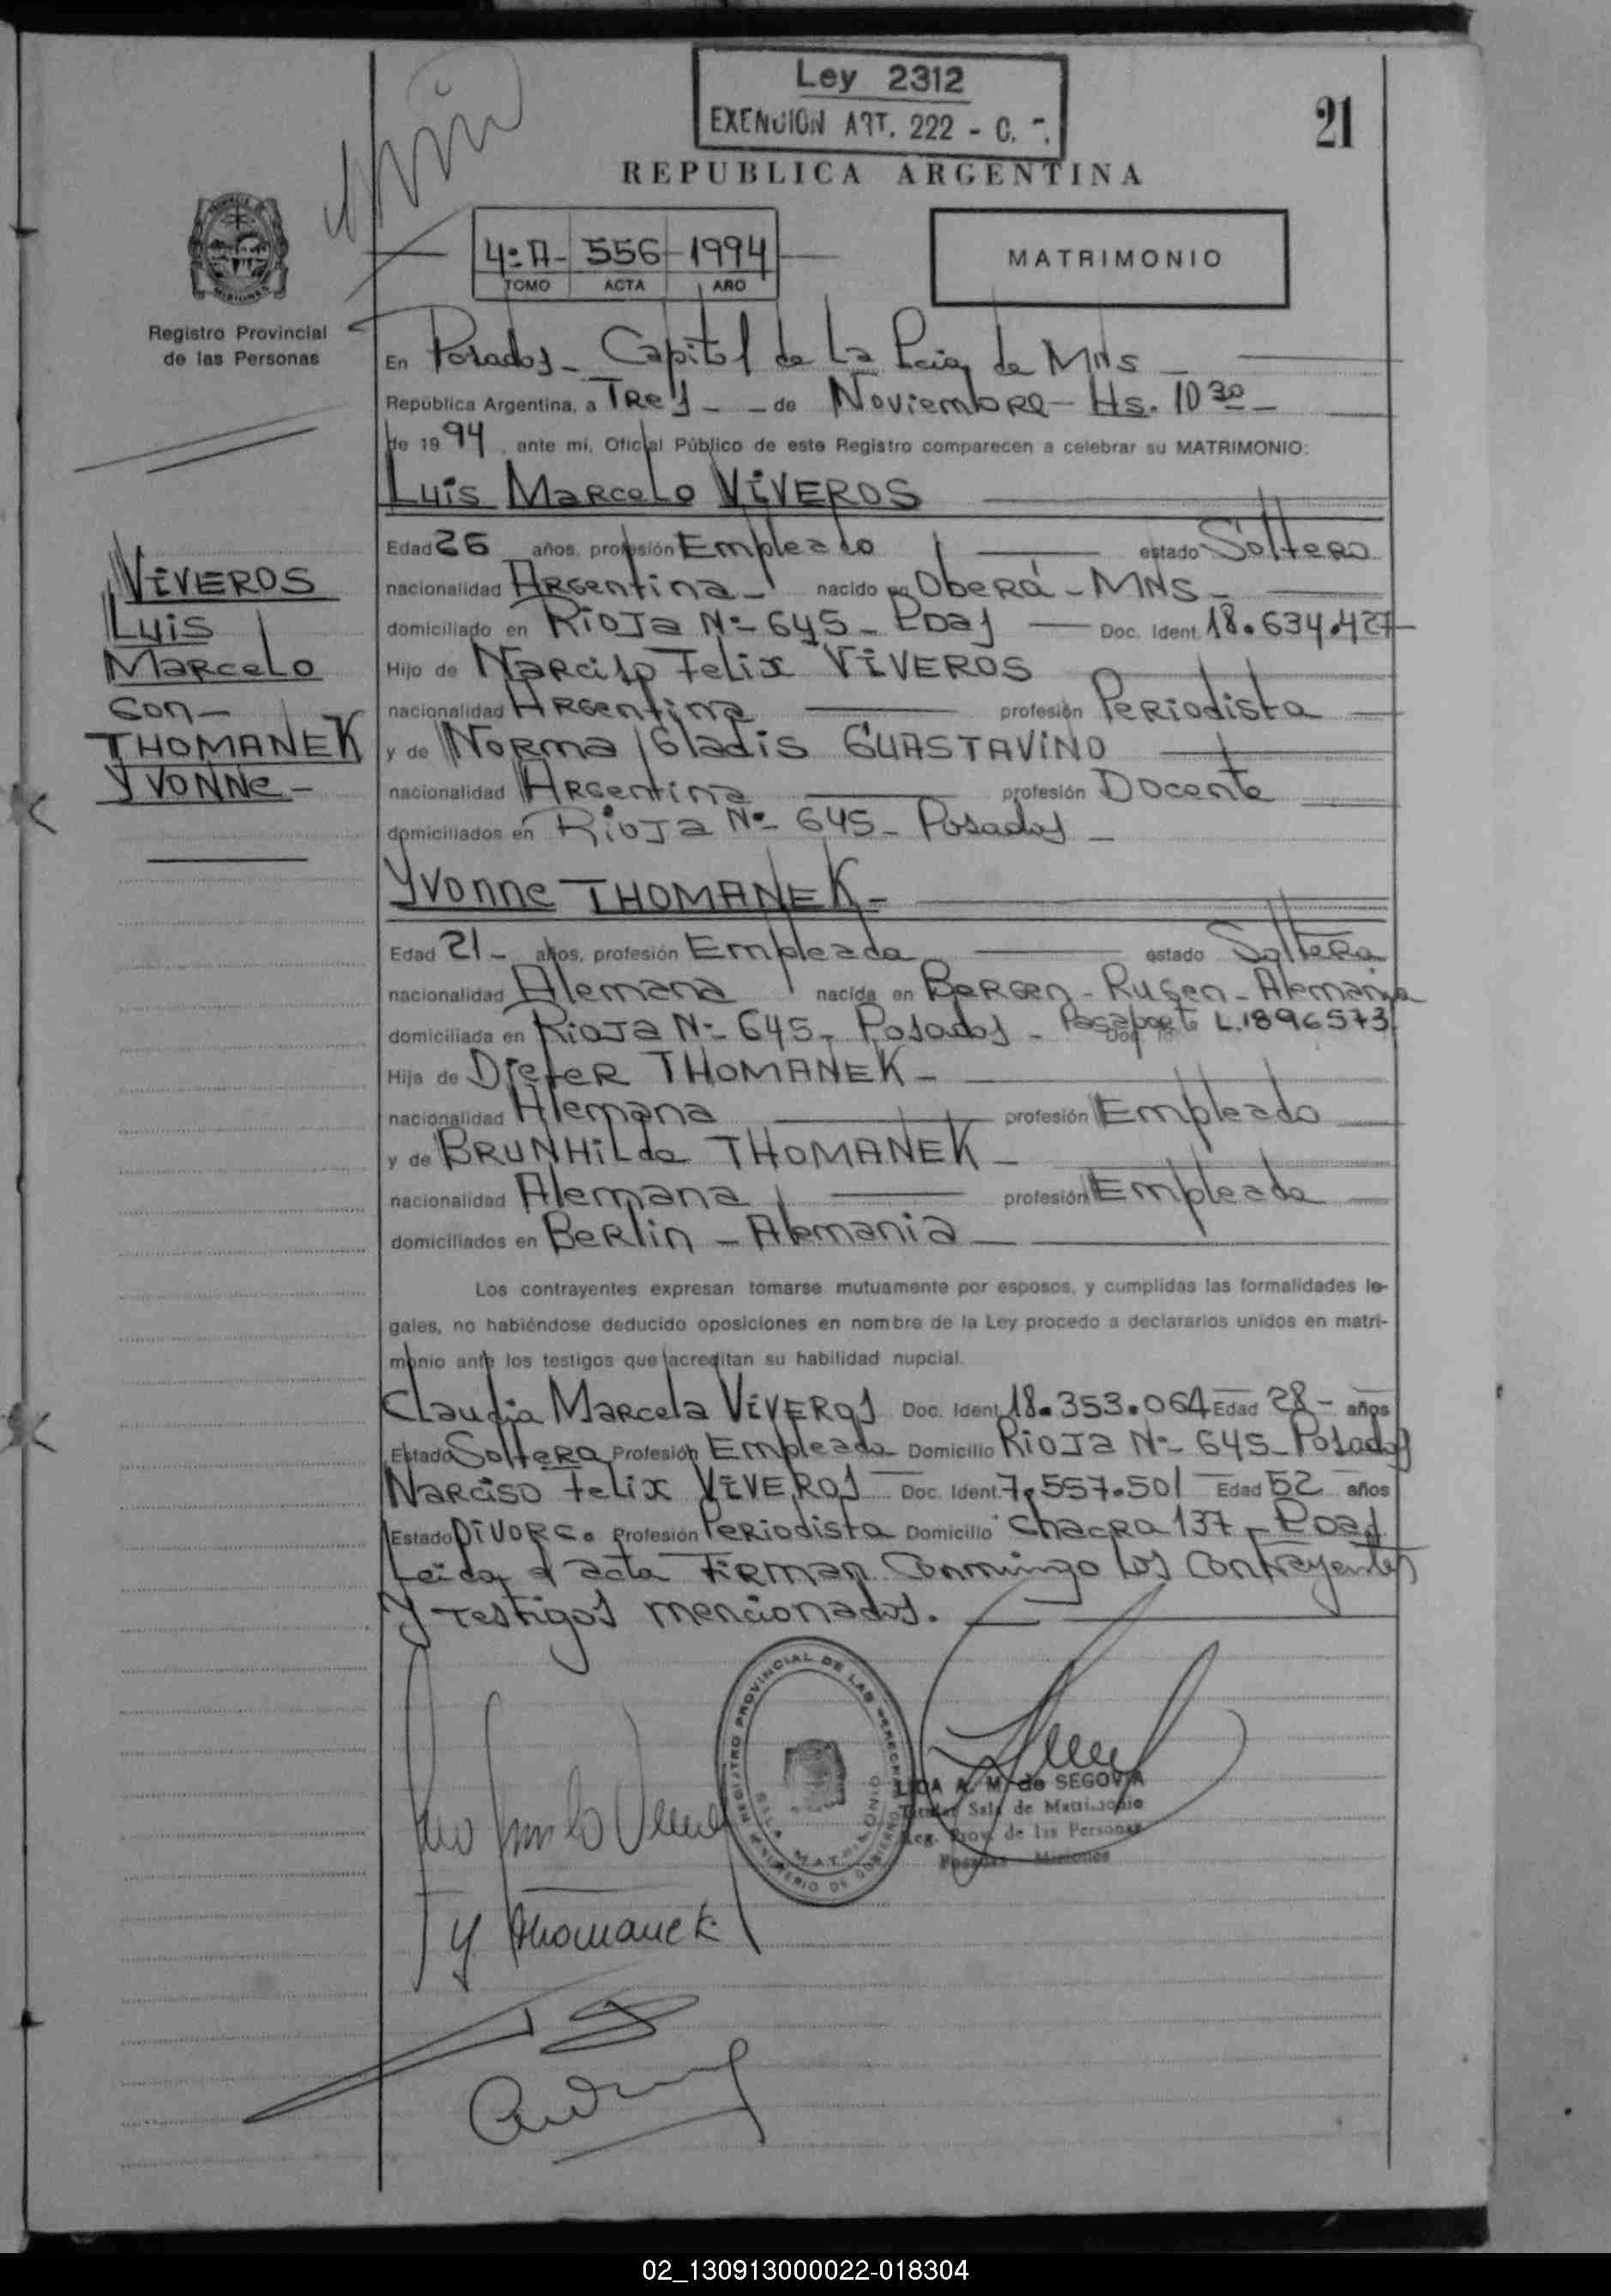 Ley 2312
EXENCION ART. 222 - C.
21
REPUBLICA ARGENTINA
4º A - 556 - 1994
TOMO ACTA AÑO
MATRIMONIO
Registro Provincial
de las Personas
En Posadas - Capital de La Pcia. de Mns -
República Argentina, a Tres - - de Noviembre - Hs. 10 30 -
de 1994, ante mí, Oficial Público de este Registro comparecen a celebrar su MATRIMONIO:
Luis Marcelo VIVEROS
Edad 26 años, profesión Empleado estado Soltero
nacionalidad Argentina - nacido en Oberá - MNS -
domiciliado en Rioja Nº 645 - Pdas Doc. Ident. 18.634.427
Hijo de Narciso Felix VIVEROS
nacionalidad Argentina profesión Periodista
y de Norma Gladis GUASTAVINO
nacionalidad Argentina profesión Docente
domiciliados en Rioja Nº 645 - Posadas -
VIVEROS
Luis
Marcelo
Con -
THOMANEK
Yvonne -
Yvonne THOMANEK -
Edad 21 - años, profesión Empleada estado Soltera
nacionalidad Alemana nacida en Bergen - Rugen - Alemania
domiciliada en Rioja Nº 645 - Posados - Pasaporte L.1896573
Hija de Dieter THOMANEK -
nacionalidad Alemana profesión Empleado
y de BRUNHilda THOMANEK -
nacionalidad Alemana profesión Empleada
domiciliados en Berlin - Alemania
Los contrayentes expresan tomarse mutuamente por esposos, y cumplidas las formalidades le-
gales, no habiéndose deducido oposiciones en nombre de la Ley procedo a declararlos unidos en matri-
monio ante los testigos que acreditan su habilidad nupcial.
Claudia Marcela VIVEROS Doc. Ident. 18.353.064 Edad 28 - años
Estado Soltera Profesión Empleada Domicilio Rioja Nº 645 - Posadas
Narciso Felix VIVEROS Doc. Ident. 7.557.501 Edad 52 años
Estado Divorc. Profesión Periodista Domicilio Chacra 137 - Pdas
Leida el acta Firman Conmingo los Contrayentes
y testigos mencionados.
REGISTRO PROVINCIAL DE LAS PERSONAS
SALA MATRIMONIO
MINISTERIO DE GOBIERNO
A. M. de SEGOVIA
Titular Sala de Matrimonio
Reg. Prov. de las Personas
Posadas Misiones
Y Thomanek
02_130913000022-018304